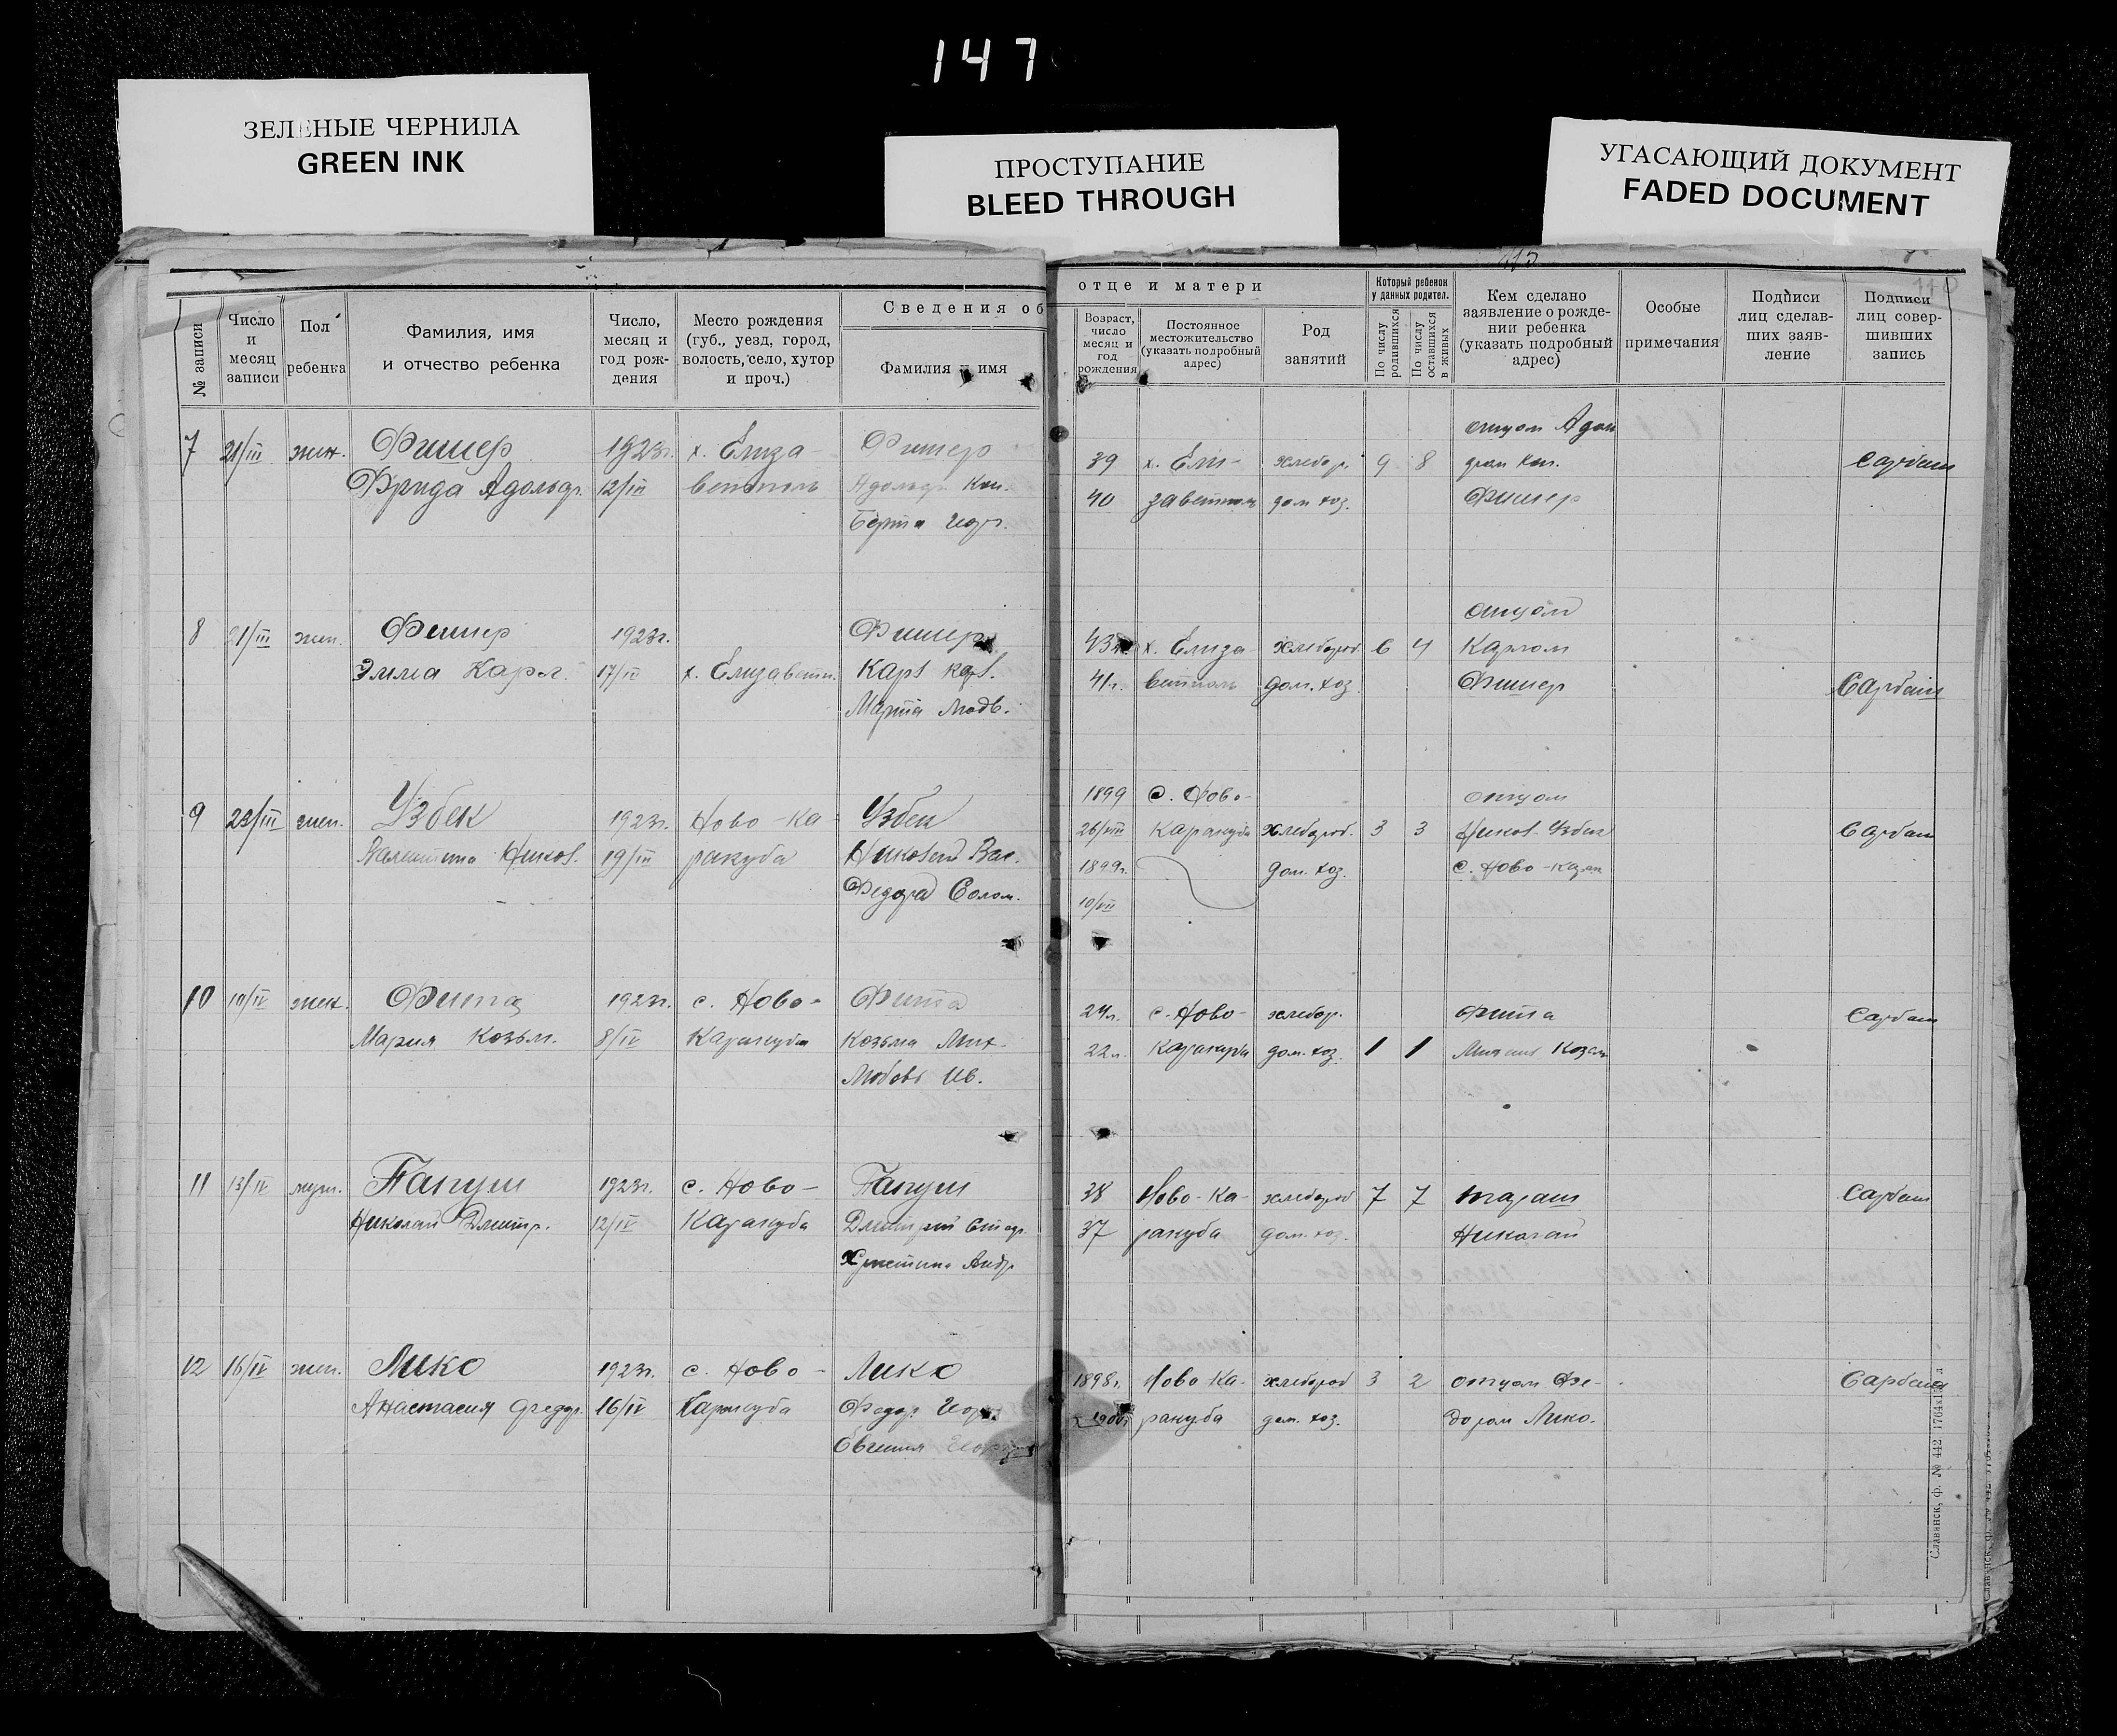 147
ЗЕЛЕНЫЕ ЧЕРНИЛА
GREEN INK
ПРОСТУПАНИЕ
BLEED THROUGH
УГАСАЮЩИЙ ДОКУМЕНТ
FADED DOCUMENT
№ записи
Число
и
месяц
записи
Пол
ребенка
Фамилия, имя
и отчество ребенка
Число,
месяц и
год рож-
дения
Место рождения
(губ., уезд, город,
волость, село, хутор
и проч.)
Сведения об
Фамилия и имя
отце и матери
Возраст,
число
месяц и
год
рождения
Постоянное
местожительство
(указать подробный
адрес)
Род
занятий
Который ребенок
у данных родител.
По числу
родившихся
По числу
оставшихся
в живых
Кем сделано
заявление о рожде-
нии ребенка
(указать подробный
адрес)
Особые
примечания
Подписи
лиц сделав-
ших заяв-
ление
Подписи
лиц совер-
шивших
запись
7 21/III жен. Фишер 1923г. х. Елиза- Фишер
Фрида Адольф. 12/III ветполь Адольф Кон.
Берта
отцом Адол
39 х. Ели- хлебор. 9 8
40 заветполь дом. хоз. Фишер
8 21/III жен. Фишер 1923г. Фишер
Эмма Карл. 17/III х. Елизаветп. Карл Карл.
Марта Людв.
отцом
43 х. Елиза- хлебороб 6 4 Карлом
41 г. ветполь дом. хоз. Фишер
9 23/III жен. Узбек 1923г. Ново-Ка- Узбек
Валентина Никол. 19/III ракуба Николай Вас.
Федора Солом.
1899 с. Ново- отцом
26/VIII Каракуба хлебороб. 3 3 Никол. Узбек
1899г. дом. хоз. с. Ново-Карак
10/VII
10 10/IV жен. Фита 1923г. с. Ново- Фита
Мария Козьм. 8/IV Каракуба Козьма Мих.
Любовь Ив.
24 л. с. Ново- хлебор. Фита
22 л. дом. хоз. 1 1
11 13/IV муж. Папуш 1923г. с. Ново- Папуш
Николай Дмитр. 12/IV Каракуба Дмитрий
Христина Андр.
38 Ново-Ка- хлебороб 7 7
37 ракуба дом. хоз. Николай
12 16/IV жен. Лико 1923г. с. Ново- Лико
Анастасия Федор. 16/IV Каракуба Федор
Евгения
1898г. Ново Ка- хлебороб 3 2 отцом Фе-
1900г. ракуба дом. хоз. дором Лико.